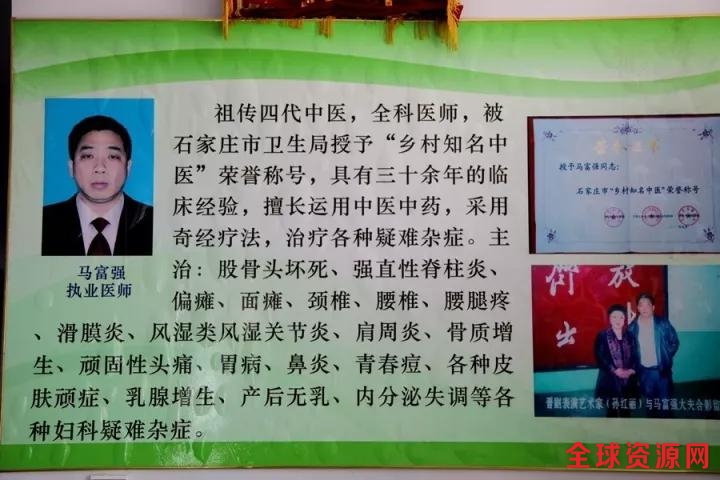 祖传四代中医，全科医师，被
石家庄市卫生局授予“乡村知名中
医”荣誉称号，具有三十余年的临
床经验，擅长运用中医中药，采用
奇经疗法，治疗各种疑难杂症。主
治：股骨头坏死、强直性脊柱炎、
偏瘫、面瘫、颈椎、腰椎、腰腿疼
、滑膜炎、风湿类风湿关节炎、肩周炎、骨质增
生、顽固性头痛、胃病、鼻炎、青春痘、各种皮
肤顽症、乳腺增生、产后无乳、内分泌失调等各
种妇科疑难杂症。
马富强
执业医师
荣誉证书
授予马富强同志：
石家庄市“乡村知名中医”荣誉称号
晋剧表演艺术家（孙红丽）与马富强大夫合影留
全球资源网